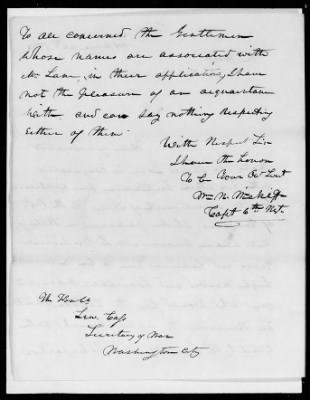 To all concerned the Gentlemen
whose names are associated with
Mr Lane, in their application, I have
not the pleasure of an acquaintance
with and can say nothing respecting
either of them
With Respect Sir
I have the honor
To be Your Obt Servt
Wm N.
Capt 6th Regt.
The Honble
Lew Cass
Secretary of War
Washington City